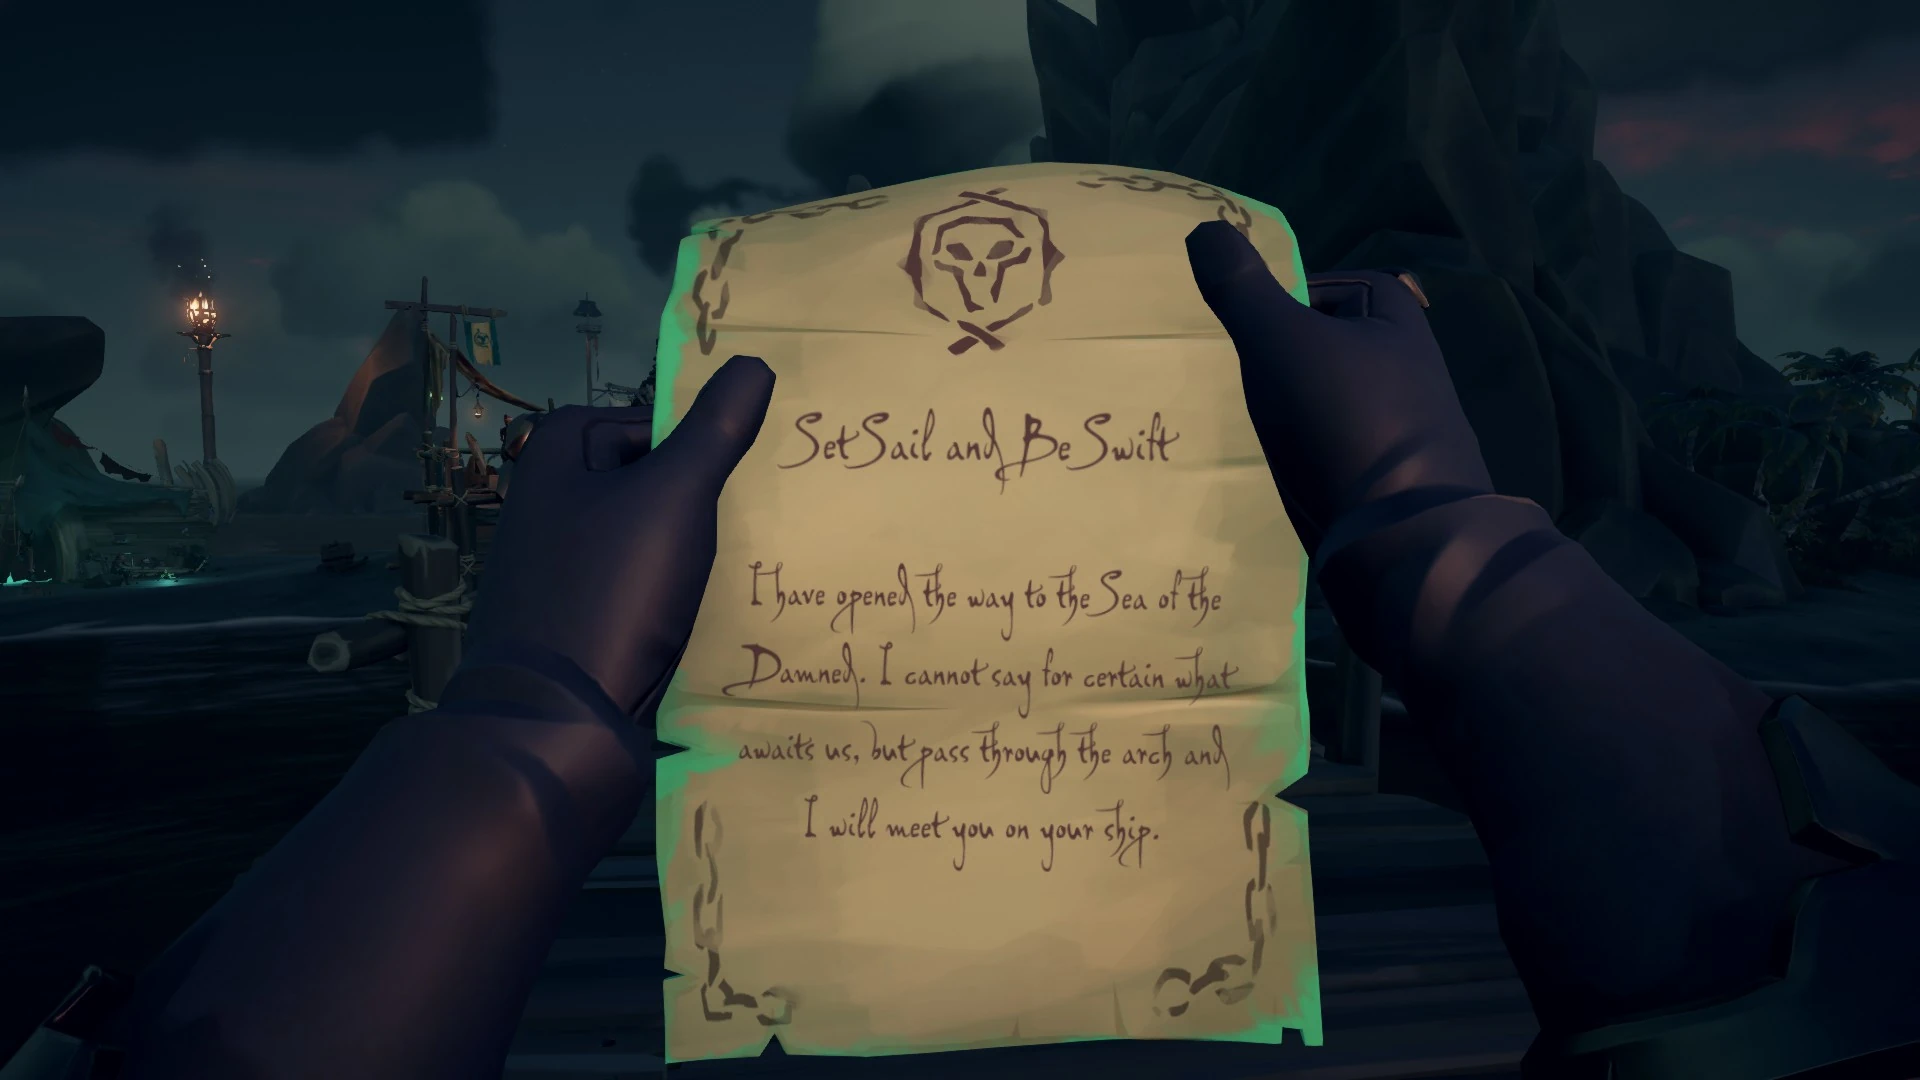 Set Sail and Be Swift
I have opened the way to the Sea of the
Damned. I cannot say for certain what
awaits us, but pass through the arch and
I will meet you on your ship.